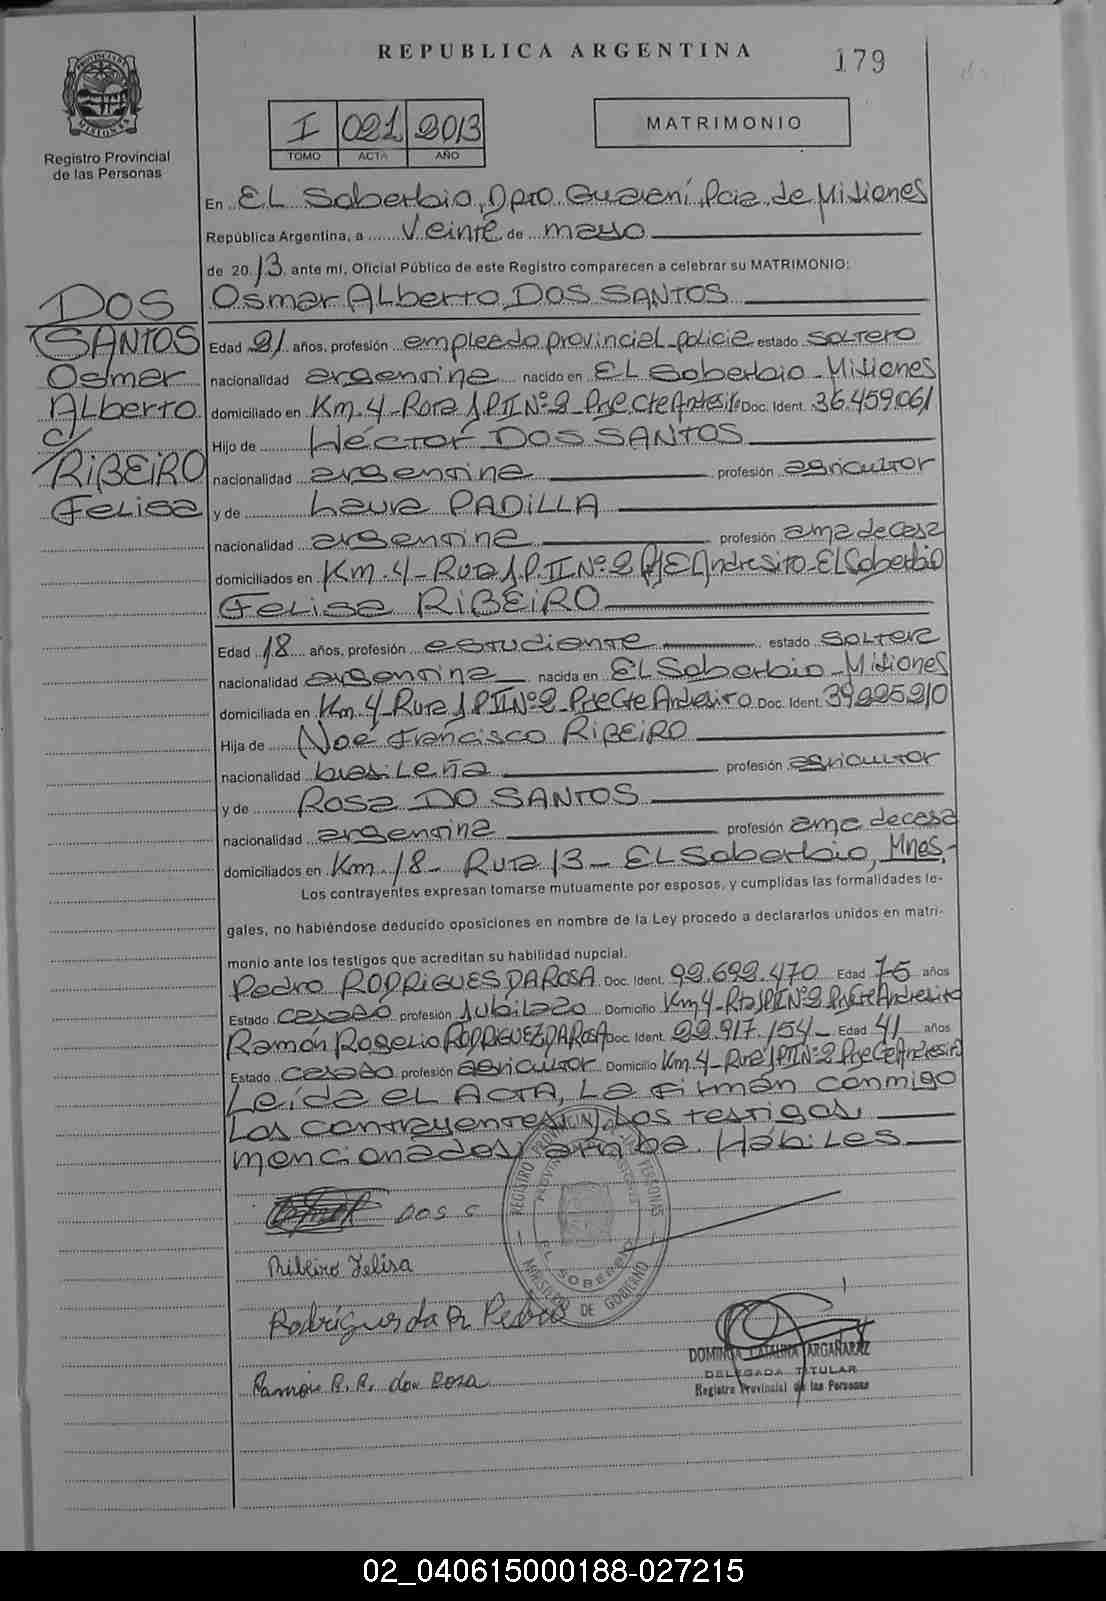 REPUBLICA ARGENTINA
179
PROVINCIA DE MISIONES
Registro Provincial
de las Personas
I 021 2013
TOMO ACTA AÑO
MATRIMONIO
En EL Soberbio, Dpto Guaraní, Pcia de Misiones
República Argentina, a Veinte de mayo
de 2013 ante mí, Oficial Público de este Registro comparecen a celebrar su MATRIMONIO:
Osmar ALberto DOS SANTOS
DOS
SANTOS
Osmar
ALberto
c/
RIBEIRO
FeLisa
Edad 21 años, profesión empleado provincial-policia estado soltero
nacionalidad argentina nacido en EL Soberbio-Misiones
domiciliado en Km.4-Ruta J.P.II Nº2-Pje Cte Andresito Doc. Ident. 36.459.061
Hijo de Héctor DOS SANTOS
nacionalidad argentina profesión agricultor
y de Laura PADILLA
nacionalidad argentina profesión ama de casa
domiciliados en Km.4-Ruta J.P.II Nº2 Andresito-EL Soberbio
FeLisa RIBEIRO
Edad 18 años, profesión estudiante estado soltera
nacionalidad argentina nacida en EL Soberbio-Misiones
domiciliada en Km.4-Ruta J.P.II Nº2-Pje Cte Andresito Doc. Ident. 39.225.210
Hija de Noe Francisco RIBEIRO
nacionalidad brasileña profesión agricultor
y de Rosa DO SANTOS
nacionalidad argentina profesión ama de casa
domiciliados en Km.18-Ruta 13-EL Soberbio, Mnes.-
Los contrayentes expresan tomarse mutuamente por esposos, y cumplidas las formalidades le-
gales, no habiéndose deducido oposiciones en nombre de la Ley procedo a declararlos unidos en matri-
monio ante los testigos que acreditan su habilidad nupcial.
Pedro RODRIGUES DA ROSA Doc. Ident. 92.692.470 Edad 75 años
Estado casado profesión Jubilado Domicilio Km4-Rta JPII Nº2 Pje Cte Andresito
Ramón Rogelio RODRIGUEZ DA ROSA Doc. Ident. 22.917.154- Edad 41 años
Estado casado profesión agricultor Domicilio Km.4-Ruta JPII Nº2 Pje Cte Andresito
Leída eL ACTA, La firman conmigo
Los contrayentes y Los testigos
mencionados arriba. Hábiles
DOS S
Ribeiro Felisa
Rodrígues da R Pedro
Ramón R. R. dou Rosa
REGISTRO PROVINCIAL DE LAS PERSONAS
EL SOBERBIO
MINISTERIO DE GOBIERNO
DOMINGA CATALINA ARGAÑARAZ
DELEGADA TITULAR
Registro Provincial de las Personas
02_040615000188-027215